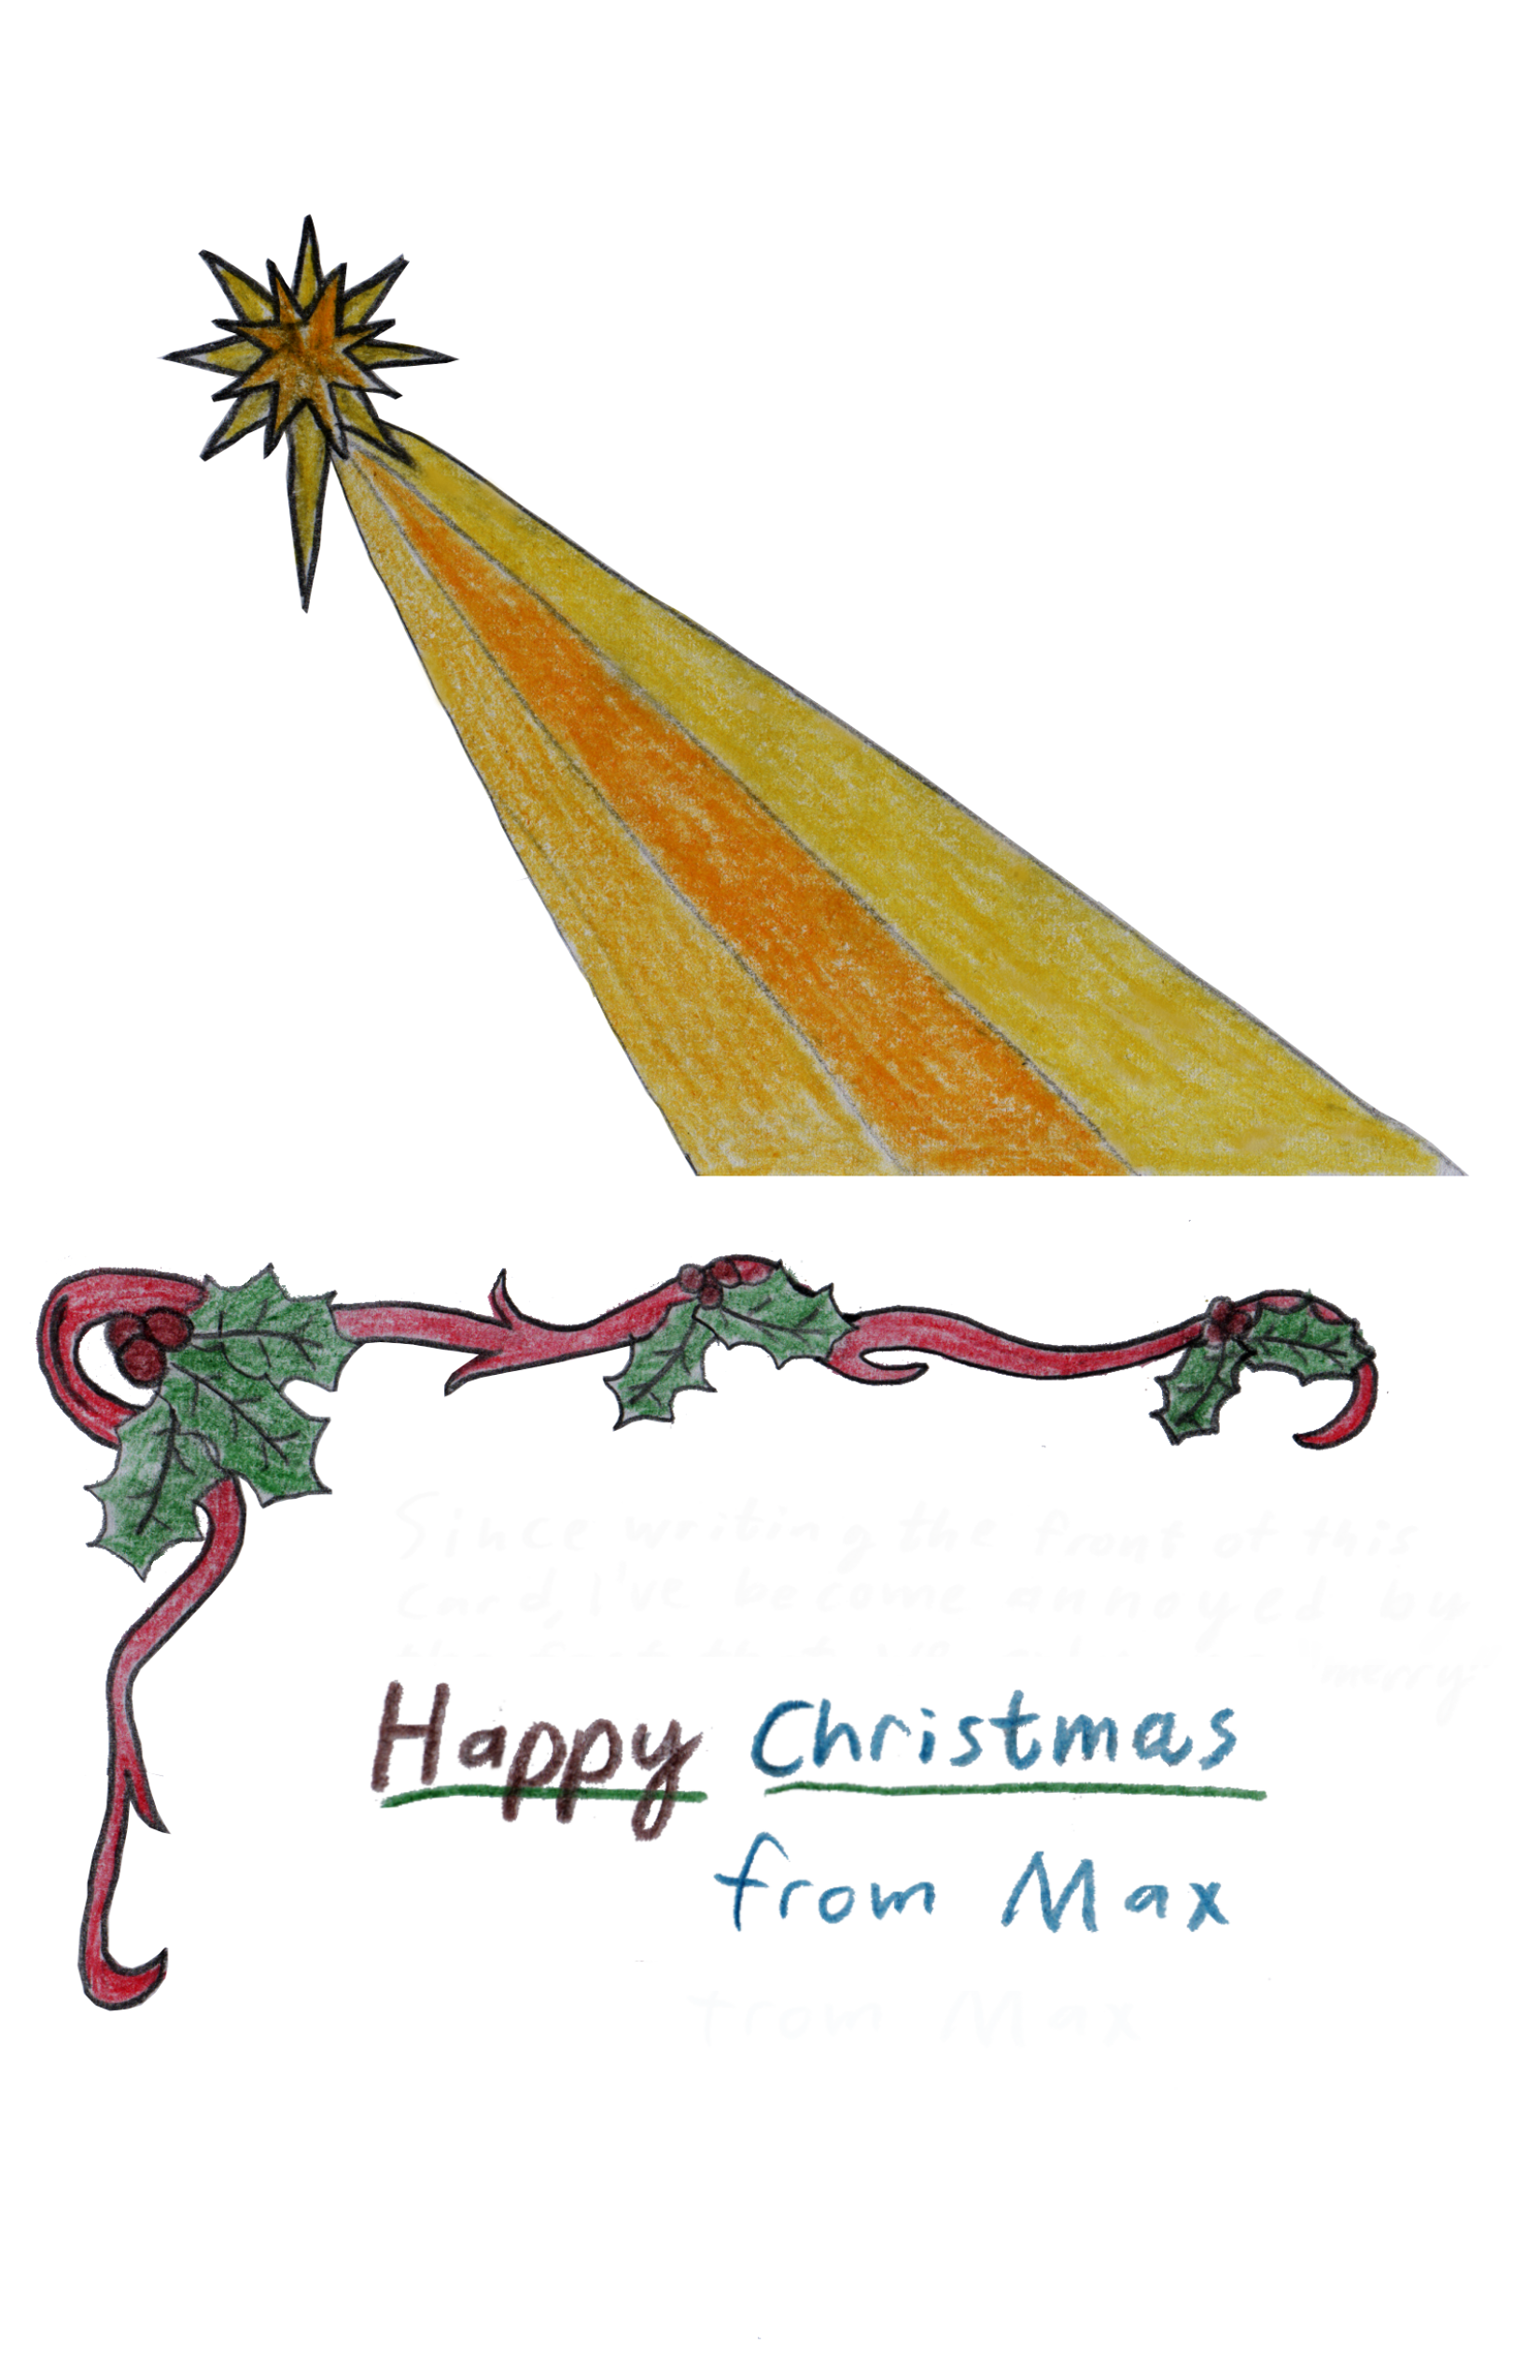 Since writing the front of this
card, I've become annoyed by
the fact that "merry"
Happy Christmas
from Max
from Max